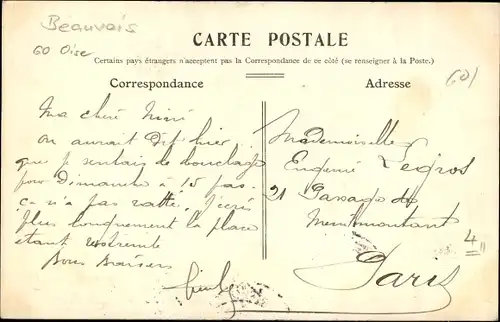 Beauvais
60 Oise
CARTE POSTALE
Certains pays étrangers n'acceptent pas la Correspondance de ce côté (se renseigner à la Poste.)
Correspondance
Adresse
60/
Ma chère Nini
on aurait dit hier
que je sentais le bouclage
pour Dimanche à 15 pas
ça n'a pas ratté. J'écris
plus longuement la place
étant restreinte
Bons Baisers
Mademoiselle
Eugenie Legros
21 Passage de
Menilmontant
4
Paris